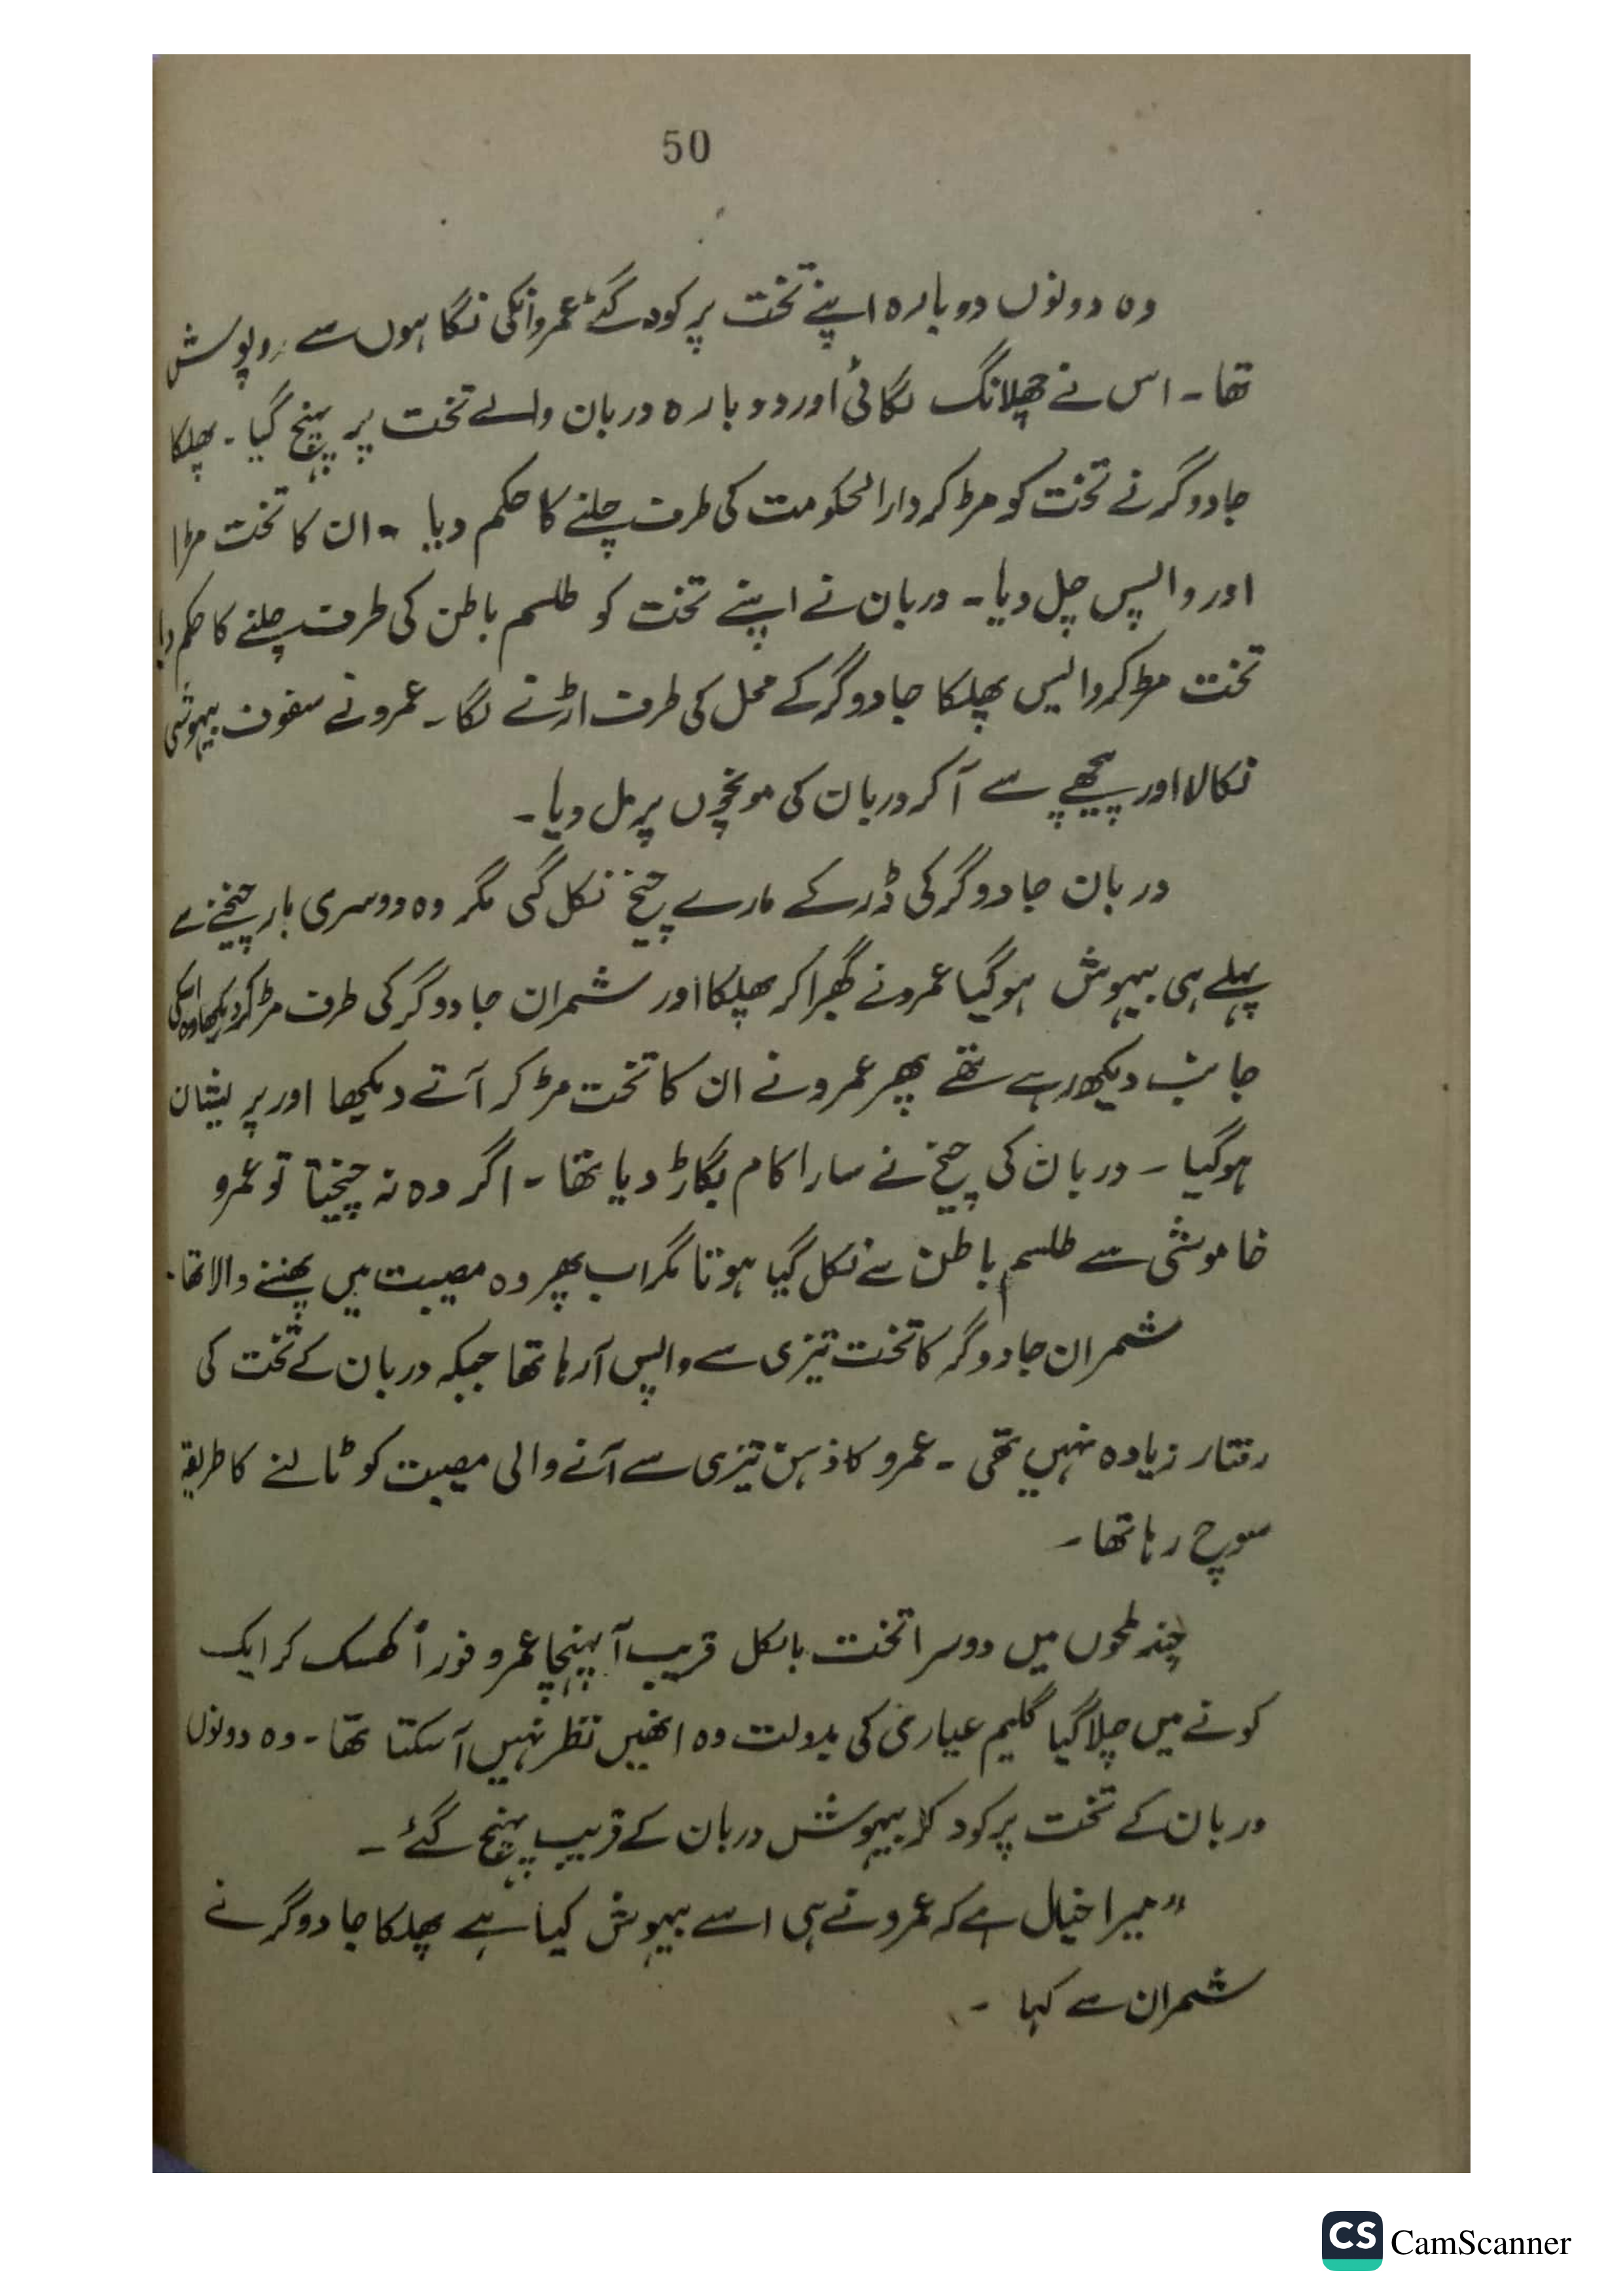 50
وہ دونوں دوبارہ اپنے تخت پر کود گئے عمرو انکی نگاہوں سے روپوش
تھا۔ اس نے چھلانگ لگائی اور دوبارہ دربان والے تخت پر پہنچ گیا۔ پھلکا
جادوگر نے تخت کو مڑ کر دارالحکومت کی طرف چلنے کا حکم دیا ۔ ان کا تخت مڑا
اور واپس چل دیا۔ دربان نے اپنے تخت کو طلسم باطن کی طرف چلنے کا حکم دیا
تخت مڑ کر واپس پھلکا جادوگر کے محل کی طرف اڑنے لگا۔ عمرو نے سفوف بیہوشی
نکالا اور پیچھے سے آ کر دربان کی مونچھوں پر مل دیا۔
دربان جادوگر کی ڈر کے مارے چیخ نکل گئی مگر وہ دوسری بار چیخنے سے
پہلے ہی بیہوش ہوگیا عمرو نے گھبرا کر پھلکا اور شمران جادوگر کی طرف مڑ کر دیکھا وہ اسکی
جانب دیکھ رہے تھے پھر عمرو نے ان کا تخت مڑ کر آتے دیکھا اور پریشان
ہوگیا ۔ دربان کی چیخ نے سارا کام بگاڑ دیا تھا ۔ اگر وہ نہ چیختا تو عمرو
خاموشی سے طلسم باطن سے نکل گیا ہوتا مگر اب پھر وہ مصیبت میں پھنسنے والا تھا۔
شمران جادوگر کا تخت تیزی سے واپس آ رہا تھا جبکہ دربان کے تخت کی
رفتار زیادہ نہیں تھی ۔ عمرو کا ذہن تیزی سے آنے والی مصیبت کو ٹالنے کا طریقہ
سوچ رہا تھا ۔
چند لمحوں میں دوسرا تخت بالکل قریب آ پہنچا عمرو فوراً کھسک کر ایک
کونے میں چلا گیا گلیم عیاری کی بدولت وہ انھیں نظر نہیں آ سکتا تھا ۔ وہ دونوں
دربان کے تخت پر کود کر بیہوش دربان کے قریب پہنچ گئے ۔
”میرا خیال ہے کہ عمرو نے ہی اسے بیہوش کیا ہے پھلکا جادوگر نے
شمران سے کہا ۔
CS CamScanner